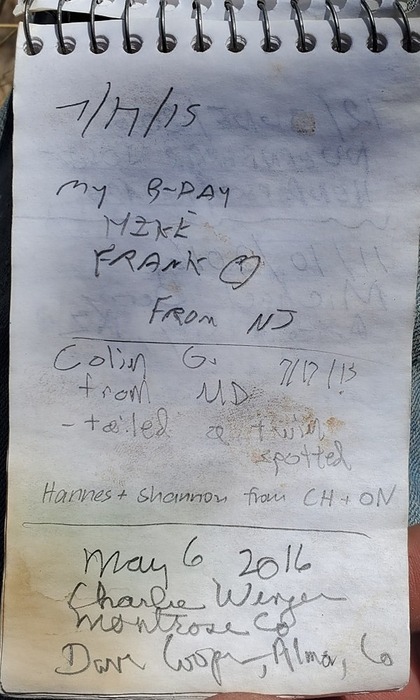 7/17/15
MY B-DAY
MIKE
FRANK
FROM NJ
Colin G. 7/17/15
from MD
- tailed a
spotted
Hannes + Shannon from CH + ON
May 6 2016
Charlie Winger
Montrose Co
Dave Cooper, Alma, Co